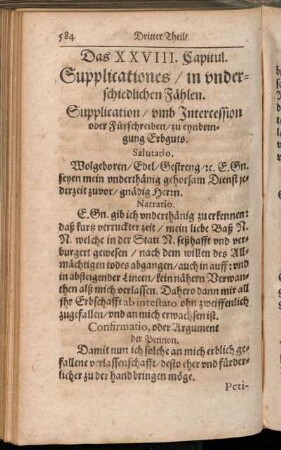 584 Dritter Theil/
Das XXVIII. Capitul.
Supplicationes / in vnder-
schiedlichen Fählen.
Supplication / vmb Intercession
oder Fürschreiben / zu eynbrin-
gung Erbguts.
Salutatio.
Wolgeboren / Edel / Gestreng / ꝛc. E. Gn.
seyen mein vnderthänig gehorsam Dienst je-
derzeit zuvor / gnädig Herrn.
Narratio.
E. Gn. gib ich vnderthänig zu erkennen:
daß kurtz verruckter zeit / mein liebe Baß N.
N. welche in der Statt N. seßhafft vnd ver-
burgert gewesen / nach dem willen des All-
mächtigen todes abgangen / auch in auff: vnd
in absteigender Lineen / kein nähern Verwan-
then alß mich verlassen. Dahero dann mir all
ihr Erbschafft ab intestato ohn zweiffenlich
zugefallen / vnd an mich erwachsen ist.
Confirmatio, oder Argument
der Petition.
Damit nun ich solche an mich erblich ge-
fallene verlassenschafft / desto eher vnd fürder-
licher zu der hand bringen möge.
Peti-